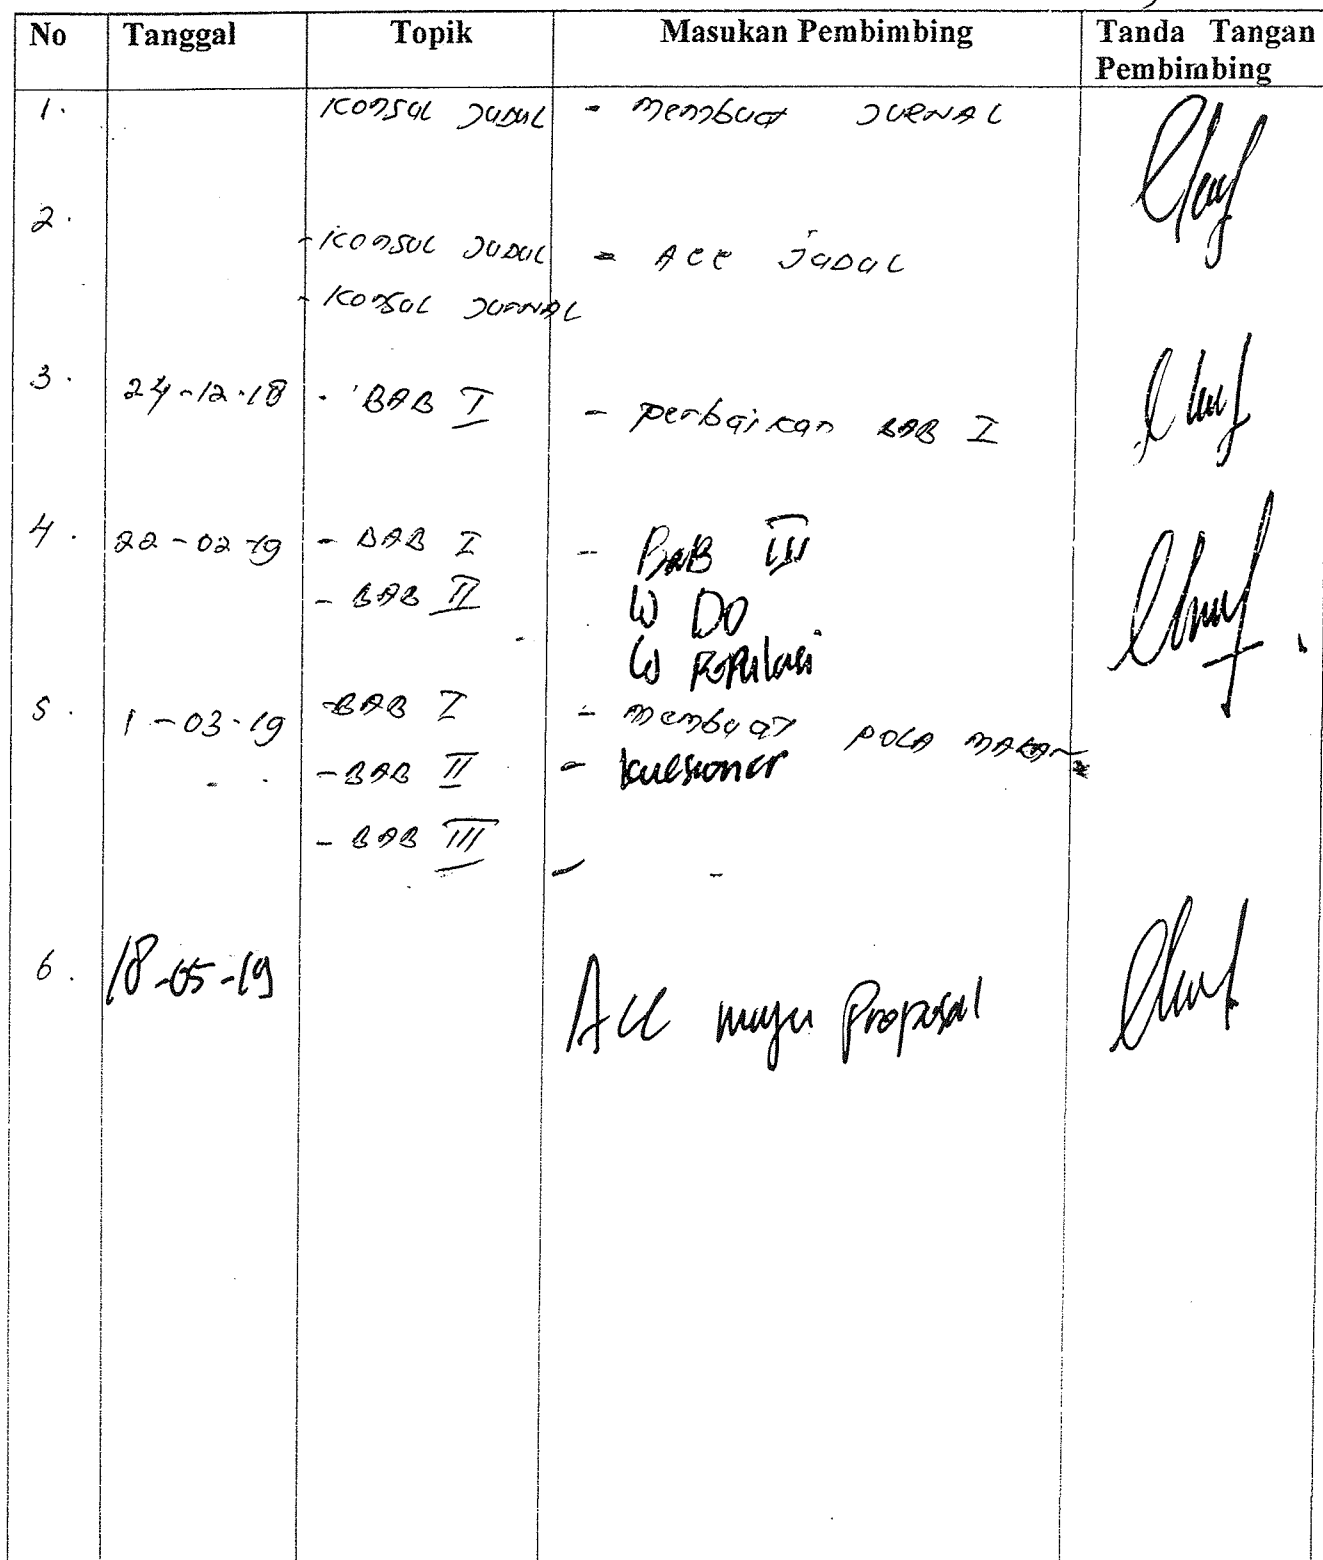 No Tanggal Topik Masukan Pembimbing Tanda Tangan
Pembimbing
1. Konsul Judul - membuat JURNAL
2.
- Konsul Judul - Acc Judul
- Konsul Jurnal
3. 24-12-18 - BAB I - perbaikan BAB I
4. 22-02-19 - BAB I - BAB III
- BAB II DO
Populasi
5. 1-03-19 - BAB I - membuat POLA MAKAN
- BAB II - kuesioner
- BAB III - -
6. 18-05-19 Acc maju Proposal